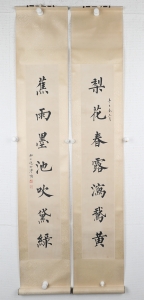 梨花春露瀉鵞黃
蕉雨墨池吹黛綠